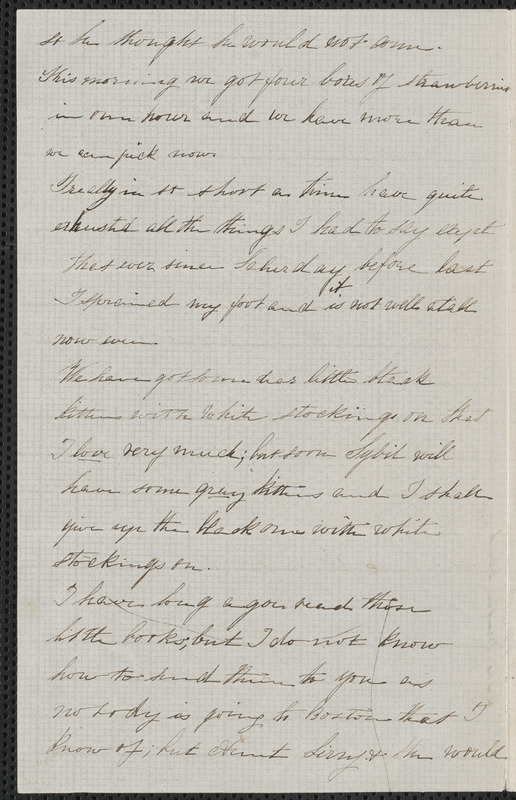 so he thought he would not come.
This morning we got four boxes of strawberries
in one hour and we have more than
we can pick now.
I really in so short a time have quite
exhusted all the things I had to say exept
that ever since Saterday before last
I strained my foot and it is not well atall
now even.
We have got some dear little black
kittens with white stockings on that
I love very much; but soon Sybil will
have some gray kittens and I shall
give up the black one with white
stockings on.
I have long agou read those
little books; but I do not know
how to send them to you as
nobody is going to Boston that I
know of; but Aunt Lizzy & she would